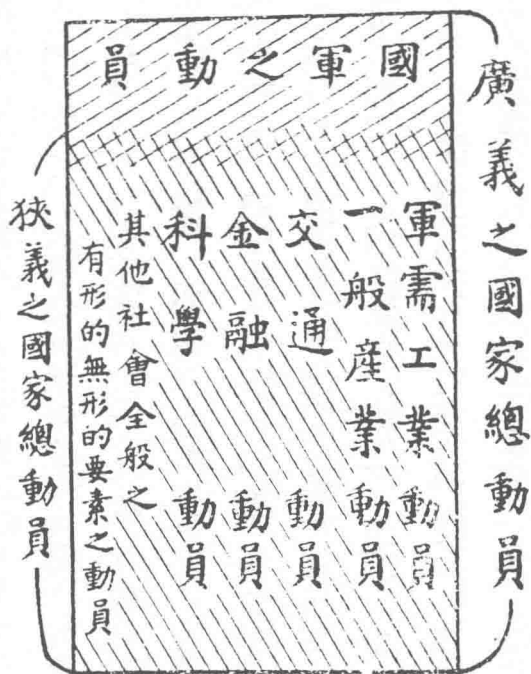 廣義之國家總動員
國軍之動員
軍需工業動員
一般産業動員
交通動員
金融動員
科學動員
其他社會全般之
有形的無形的要素之動員
狹義之國家總動員